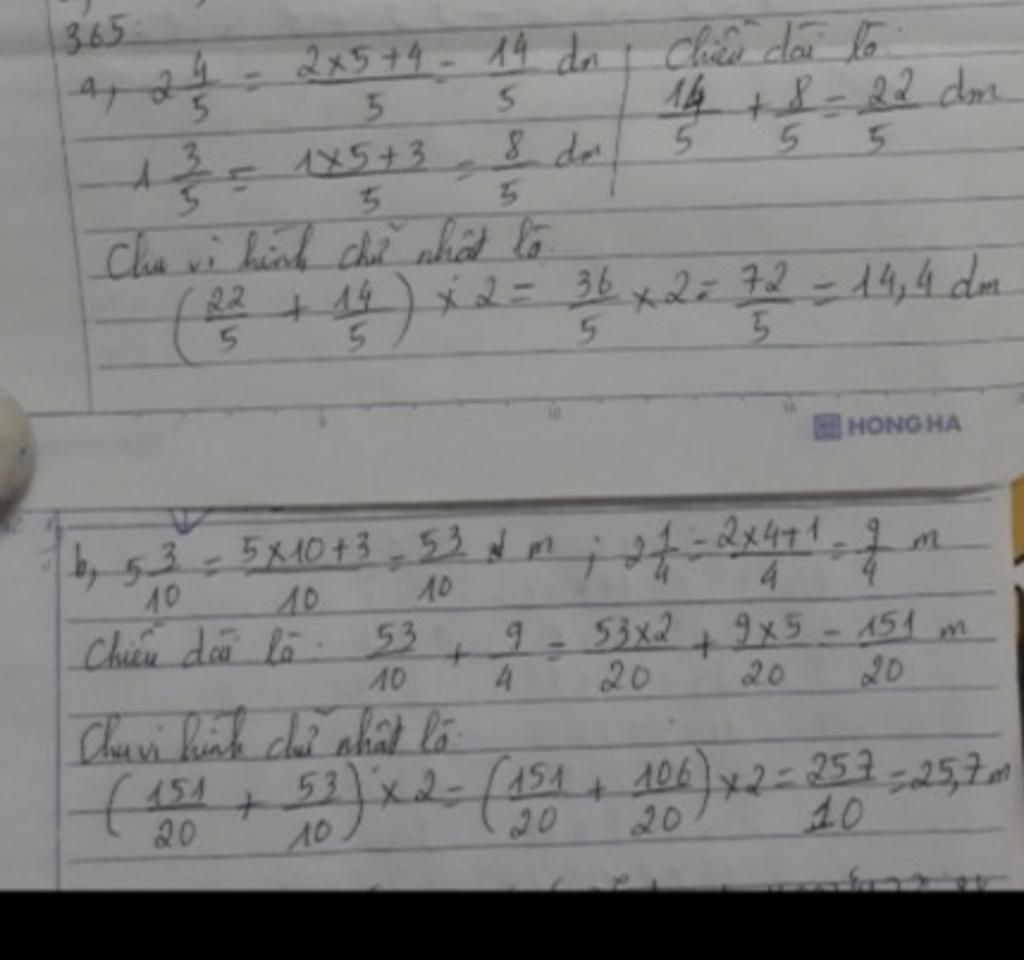 365:
a, 2 4/5 = (2×5+4)/5 = 14/5 dm | Chiều dài là:
14/5 + 8/5 = 22/5 dm
1 3/5 = (1×5+3)/5 = 8/5 dm
Chu vi hình chữ nhật là:
(22/5 + 14/5) × 2 = 36/5 × 2 = 72/5 = 14,4 dm
5 10 15
HONG HA
b, 5 3/10 = (5×10+3)/10 = 53/10 m ; 2 1/4 = (2×4+1)/4 = 9/4 m
Chiều dài là: 53/10 + 9/4 = 53×2/20 + 9×5/20 = 151/20 m
Chu vi hình chữ nhật là:
(151/20 + 53/10) × 2 = (151/20 + 106/20) × 2 = 257/10 = 25,7 m